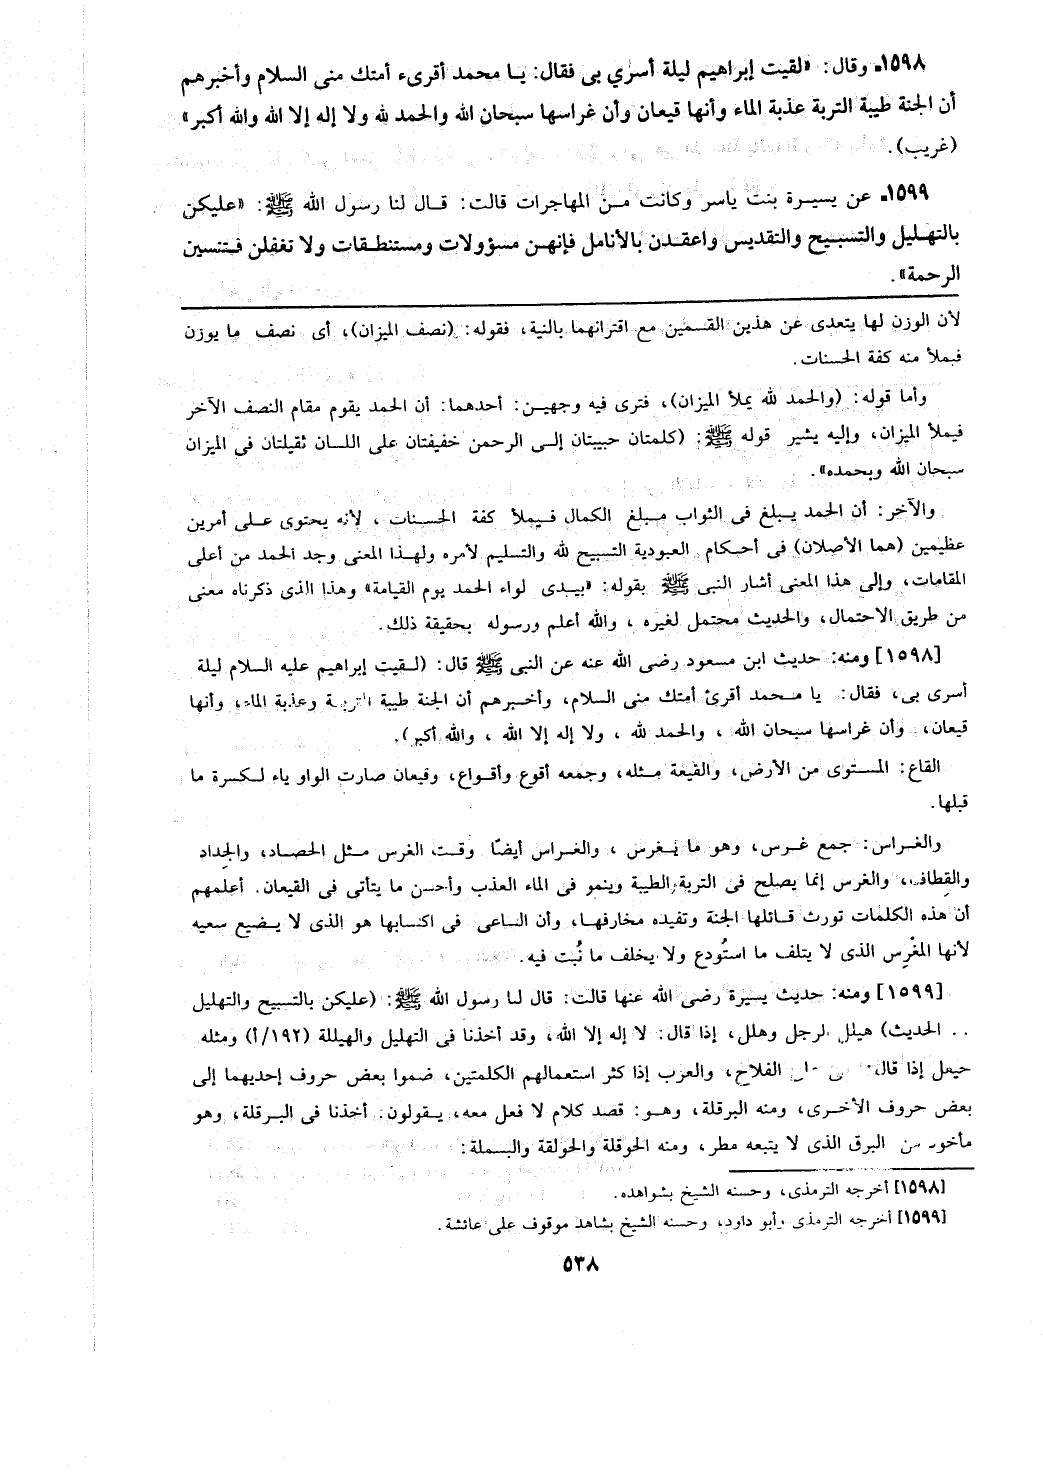 ١٥٩٨ـ وقال: «لقيت إبراهيم ليلة أسري بى فقال: يا محمد أقرىء أمتك منى السلام وأخبرهم
أن الجنة طيبة التربة عذبة الماء وأنها قيعان وأن غراسها سبحان الله والحمد لله ولا إله إلا الله والله أكبر»
(غريب).
١٥٩٩ـ عن يسيرة بنت ياسر وكانت من المهاجرات قالت: قال لنا رسول الله ﷺ: «عليكن
بالتهليل والتسبيح والتقديس واعقدن بالأنامل فإنهن مسؤولات ومستنطقات ولا تغفلن فتنسين
الرحمة».
لأن الوزن لها يتعدى عن هذين القسمين مع اقترانهما بالنية، فقوله: (نصف الميزان)، أى نصف ما يوزن
فيملأ منه كفة الحسنات.
وأما قوله: (والحمد لله يملأ الميزان)، فترى فيه وجهين: أحدهما: أن الحمد يقوم مقام النصف الآخر
فيملأ الميزان، وإليه يشير قوله ﷺ: (كلمتان حبيبتان إلى الرحمن خفيفتان على اللسان ثقيلتان فى الميزان
سبحان الله وبحمده».
والآخر: أن الحمد يبلغ فى الثواب مبلغ الكمال فيملأ كفة الحسنات، لأنه يحتوى على أمرين
عظيمين (هما الأصلان) فى أحكام العبودية التسبيح لله والتسليم لأمره ولهذا المعنى وجد الحمد من أعلى
المقامات، وإلى هذا المعنى أشار النبى ﷺ بقوله: «بيدى لواء الحمد يوم القيامة» وهذا الذى ذكرناه معنى
من طريق الاحتمال، والحديث محتمل لغيره، والله أعلم ورسوله بحقيقة ذلك.
[١٥٩٨] ومنه: حديث ابن مسعود رضى الله عنه عن النبى ﷺ قال: (لقيت إبراهيم عليه السلام ليلة
أسرى بى، فقال: يا محمد أقرئ أمتك منى السلام، وأخبرهم أن الجنة طيبة التربة وعذبة الماء، وأنها
قيعان، وأن غراسها سبحان الله، والحمد لله، ولا إله إلا الله، والله أكبر).
القاع: المستوى من الأرض، والقيعة مثله، وجمعه أقوع وأقواع، وقيعان صارت الواو ياء لكسرة ما
قبلها.
والغراس: جمع غرس، وهو ما يغرس، والغراس أيضًا وقت الغرس مثل الحصاد، والجِداد
والقِطاف، والغرس إنما يصلح فى التربة الطيبة وينمو فى الماء العذب وأحسن ما يتأتى فى القيعان. أعلمهم
أن هذه الكلمات تورث قائلها الجنة وتفيده مخارفها، وأن الساعى فى اكتسابها هو الذى لا يضيع سعيه
لأنها المغْرِس الذى لا يتلف ما استُودع ولا يخلف ما نُبت فيه.
[١٥٩٩] ومنه: حديث يسيرة رضى الله عنها قالت: قال لنا رسول الله ﷺ: (عليكن بالتسبيح والتهليل
.. الحديث) هيلل الرجل وهلل، إذا قال: لا إله إلا الله، وقد أخذنا فى التهليل والهيللة (١٩٢/أ) ومثله
حيعل إذا قال: على الفلاح، والعرب إذا كثر استعمالهم الكلمتين، ضموا بعض حروف إحديهما إلى
بعض حروف الأخرى، ومنه البرقلة، وهو: قصد كلام لا فعل معه، يقولون: أخذنا فى البرقلة، وهو
مأخوذ من البرق الذى لا يتبعه مطر، ومنه الحوقلة والحولقة والبسملة:
[١٥٩٨] أخرجه الترمذى، وحسنه الشيخ بشواهده.
[١٥٩٩] أخرجه الترمذى وأبو داود، وحسنه الشيخ بشاهد موقوف على عائشة.
٥٣٨